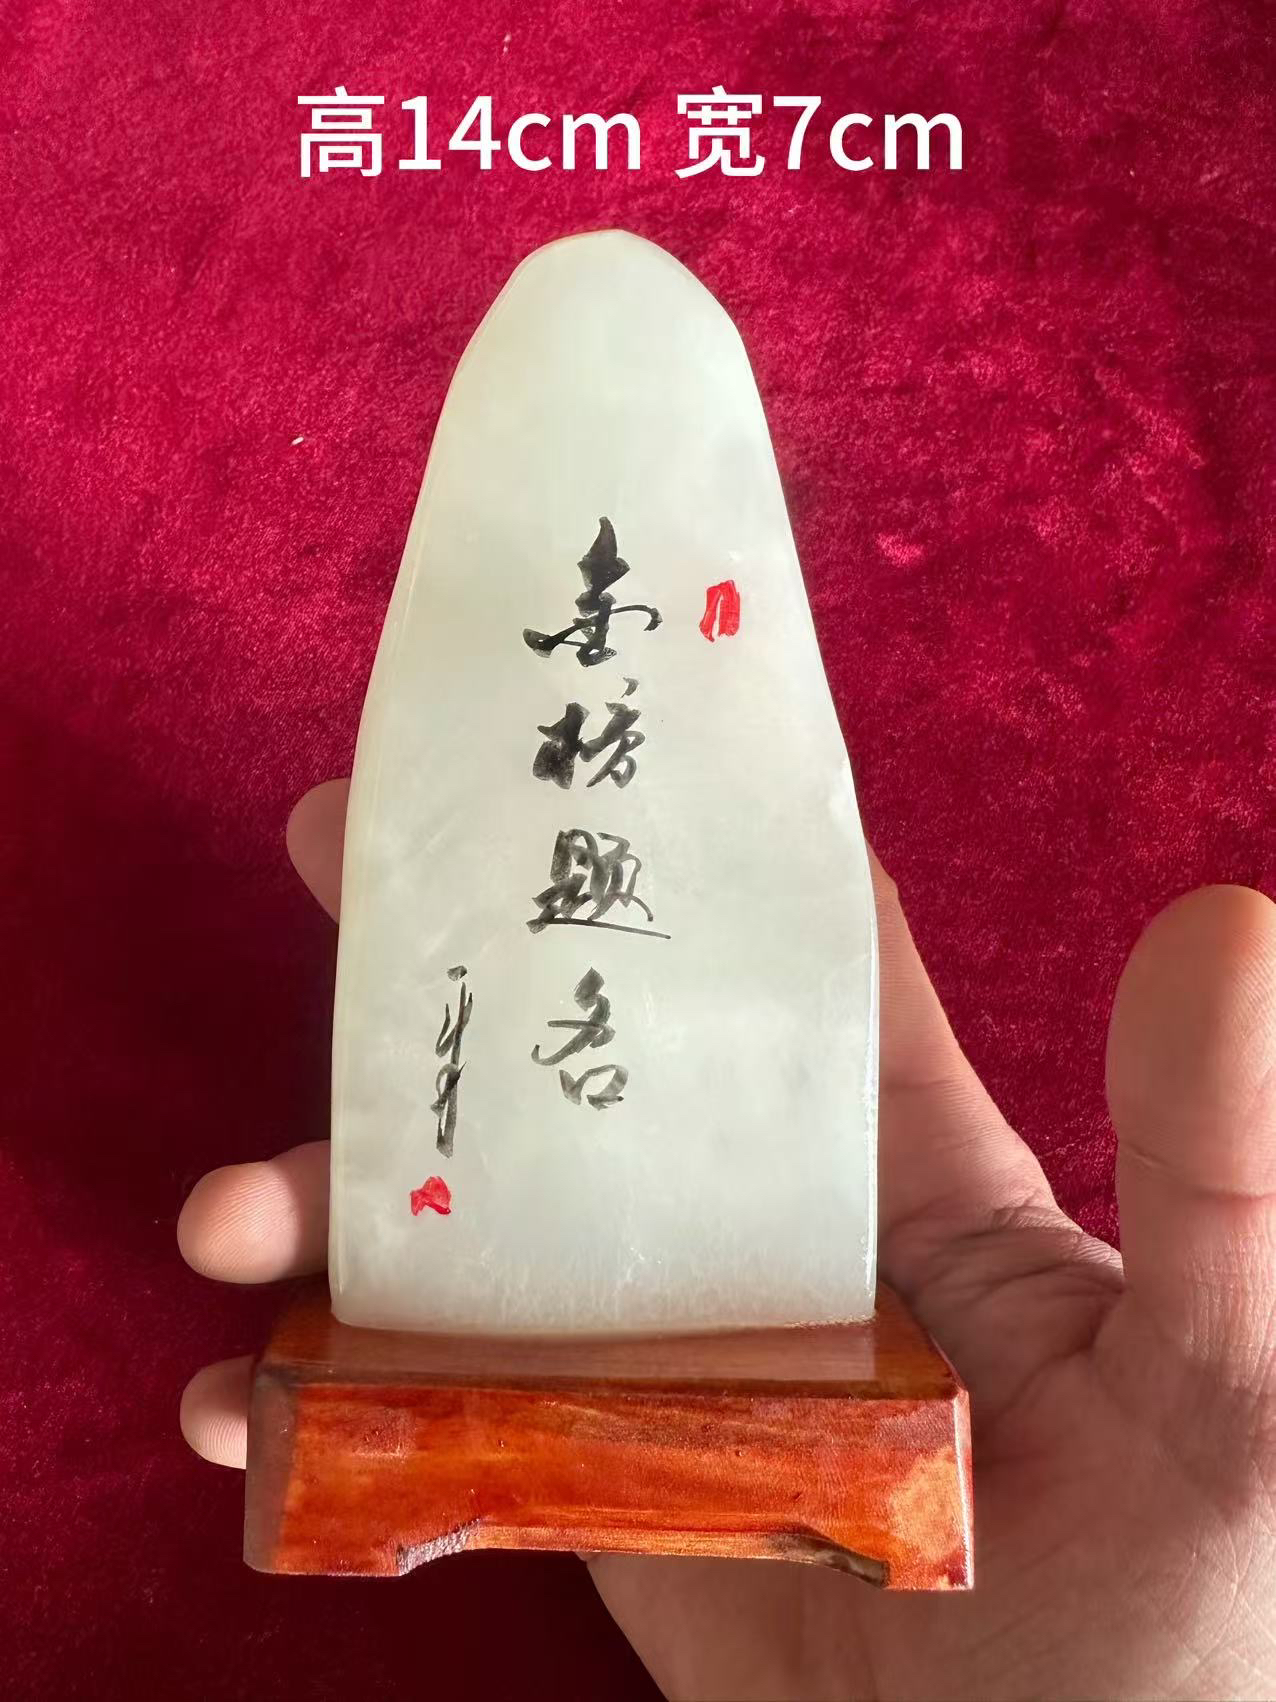 高14cm 宽7cm
金榜题名